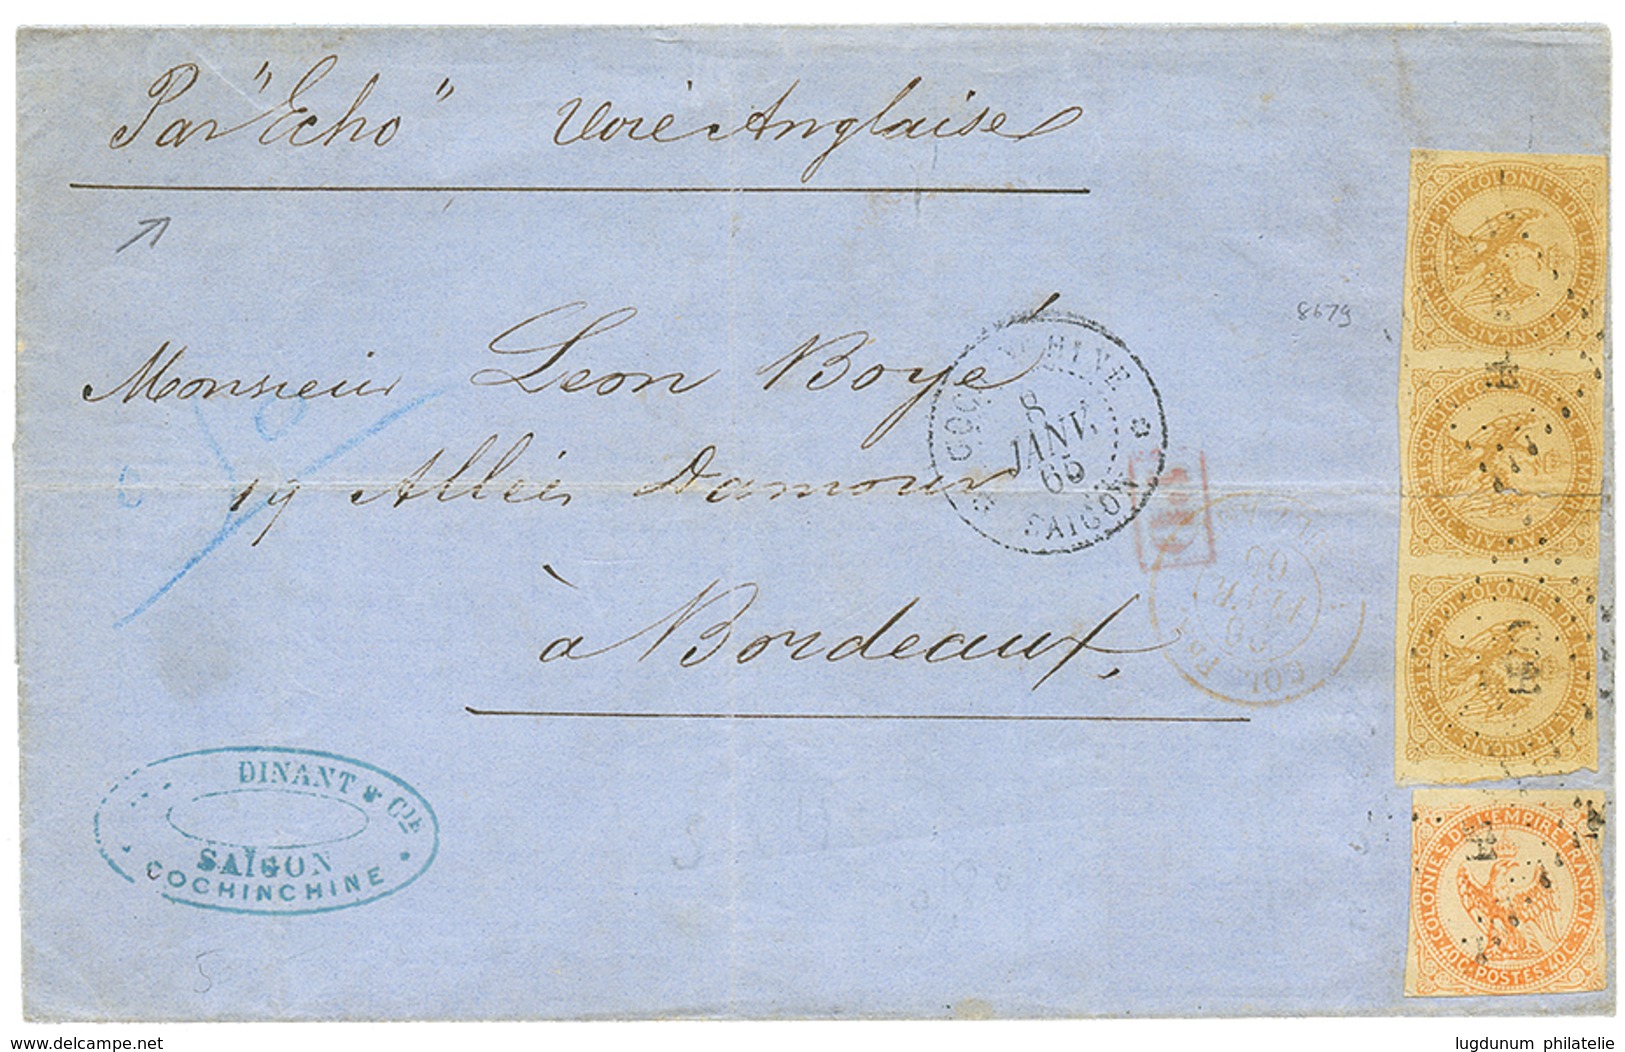 Par "Echo" Voie Anglaise
8679
Monsieur Leon Boyé
19 Allée Damour
à Bordeaux,
COCHINCHINE
8
JANV.
65
SAIGON
COL. FR.
FEVR
65
DINANT & CIE
SAÏGON
COCHINCHINE
5
COLONIES DE L'EMPIRE FRANÇAIS
POSTES 10C.
COLONIES DE L'EMPIRE FRANÇAIS
POSTES 10C.
COLONIES DE L'EMPIRE FRANÇAIS
POSTES 10C.
COLONIES DE L'EMPIRE FRANÇAIS
40C. POSTES 40C.
delcampe.net
lugdunum philatelie